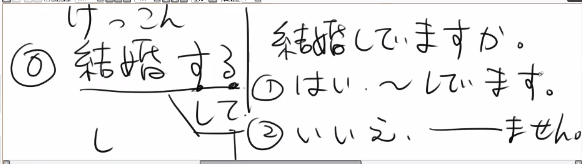 けっこん
⓪ 結婚する
して
し
結婚していますか。
① はい、〜しています。
② いいえ、――ません。